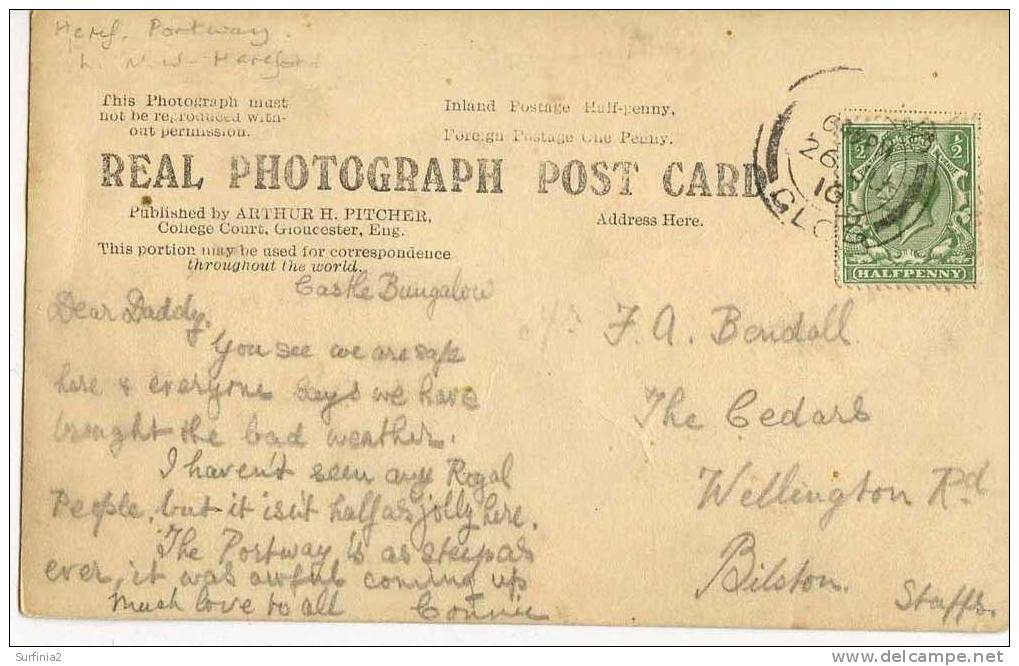 Heref. Portway.
N.W. Hereford
This Photograph must
not be reproduced with-
out permission.
Inland Postage Half-penny,
Foreign Postage One Penny.
REAL PHOTOGRAPH POST CARD
Published by ARTHUR H. PITCHER,
College Court, Gloucester, Eng.
This portion may be used for correspondence
throughout the world.
Address Here.
26
½ ½
HALFPENNY
Castle Bungalow
Dear Daddy,
You see we are safe
here & everyone says we have
brought the bad weather.
I haven't seen any Royal
People, but it isn't half as jolly here.
The Portway is as steep as
ever, it was awful coming up
Much love to all Connie
F. A. Bendall
The Cedars
Wellington Rd
Bilston.
Staffs.
Surfinia2
www.delcampe.net